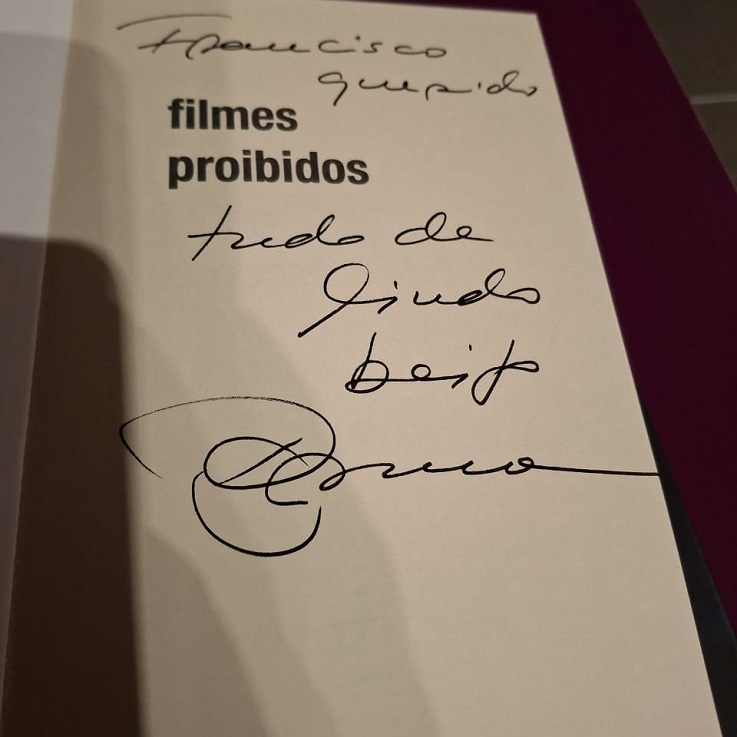 Francisco
querido
filmes
proibidos
tudo de
lindo
beijo
Bruna